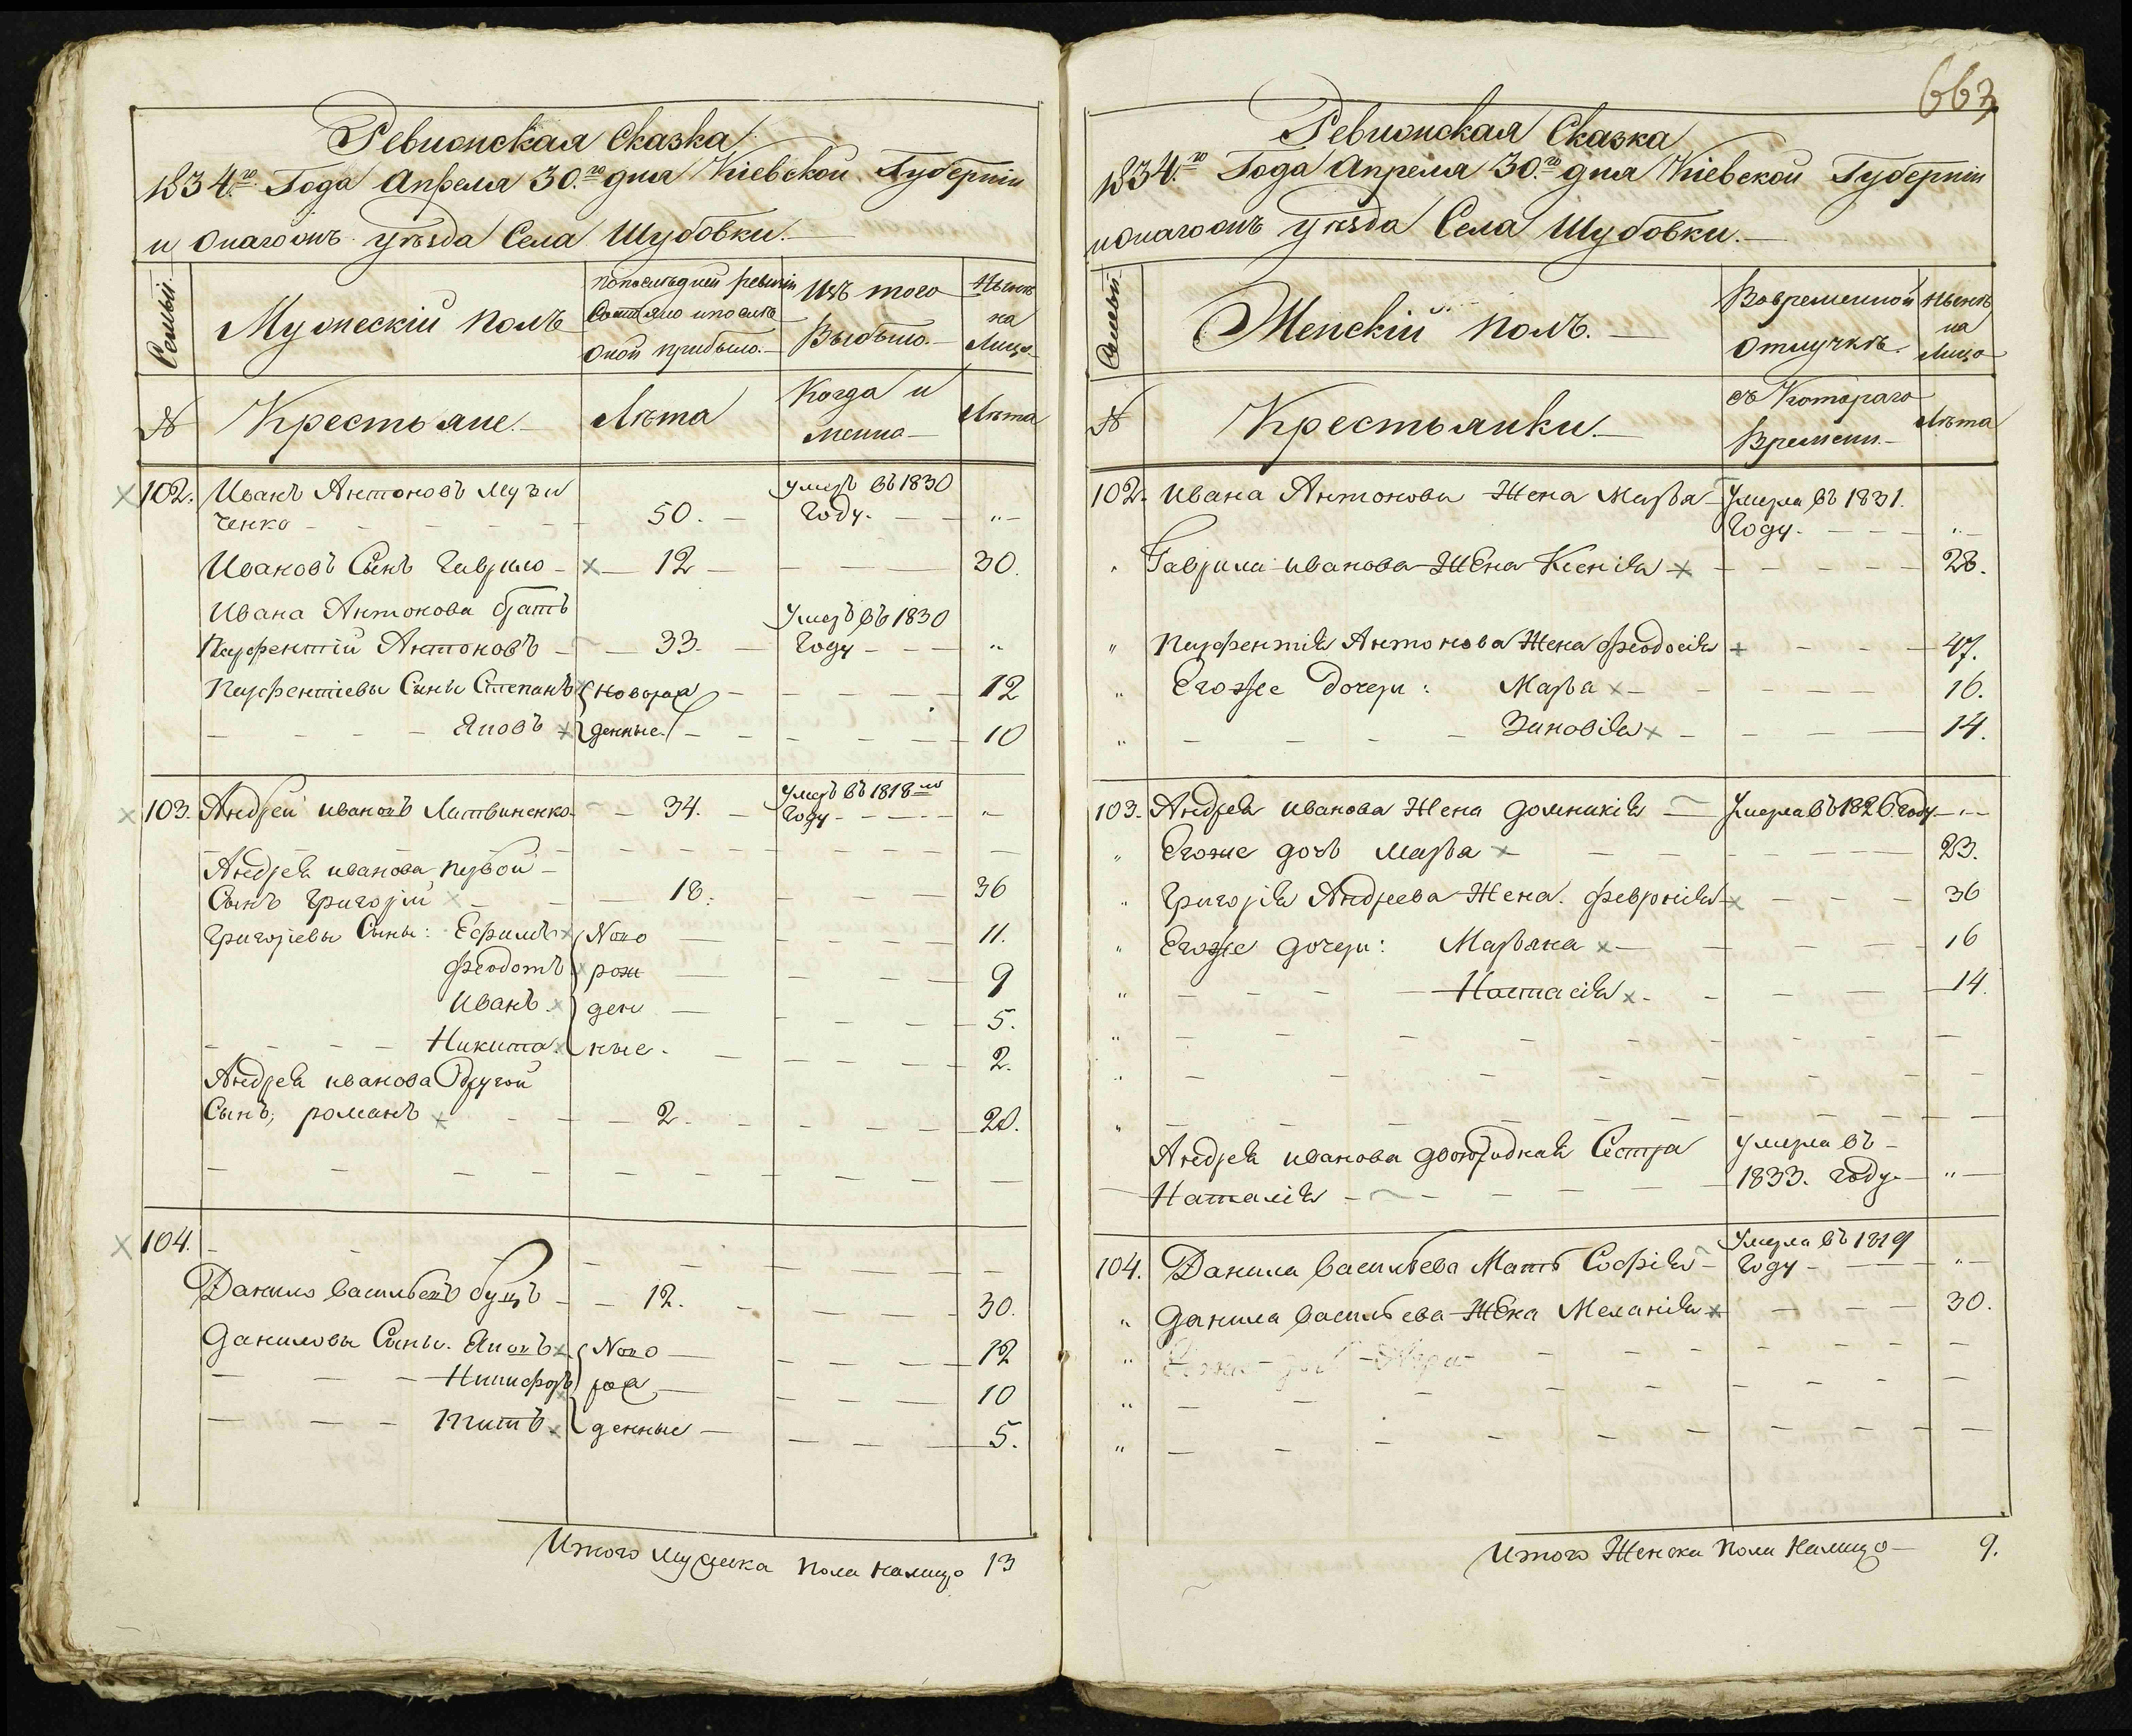 667
Ревизская Сказка
1834.го Года Апреля 30.го дня Кіевской Губерніи
и онагожъ уѣзда Села Шубовки.
Семьи.
Мужескій полъ
по послѣдней ревизіи
Состояло и послѣ
оной прибыло.
Изъ того
Выбыло.
Нынѣ
на
Лицо
№
Крестьяне.
Лѣта
Когда и
менно
Лѣта
102. Иванъ Антоновъ Музи
ченко 50. умеръ въ 1830
Году. „
Ивановъ Сынъ Гаврило 12 30.
Ивана Антонова братъ
Парфентій Антоновъ 33. Умеръ въ 1830
Году „
Парфентіевы Сыны Степанъ новорож 12
Яковъ денные 10
103. Андрей Ивановъ Литвиненко 34. Умеръ въ 1818го
Году „
Андрея Иванова первой
Сынъ Григорій 18. 36
Григоріевы Сыны: Ефимъ Ново 11.
Феодотъ рож 9
Иванъ ден 5.
Никита ные. 2.
Андрея иванова другой
Сынъ, романъ 2 20.
104.
Данило Васильевъ 12. 30.
Даниловы Сыны. Яковъ Ново 12
Никифоръ рож 10
Титъ денные 5.
Итого мужеска пола налицо 13
Ревизская Сказка
1834.го Года Апреля 30.го дня Кіевской Губерніи
и онагожъ уѣзда Села Шубовки.
Семьи.
Женскій полъ.
Во временной
Отлучкѣ.
Нынѣ
на
Лицо
№
Крестьянки.
съ Котораго
Времени.
Лѣта
102. Ивана Антонова Жена Марѳа Умерла въ 1831.
Году. „
„ Гаврила иванова Жена Ксенія 28.
„ Парфентія Антонова Жена Феодосія 47.
„ Егожже дочери: Марѳа 16.
„ Зиновія 14.
103. Андрея иванова Жена Домникія Умерла въ 1826 году „
„ Егоже дочь Марѳа 23.
„ Григорія Андреева Жена. Февронія 36
„ Егожже дочери: Маріана 16
„ Настасія 14.
Андрея иванова двоюродная Сестра Умерла въ
Наталія 1833. году „
104. Данила Васильева Мать Софія Умерла въ 1819
Году „
„ Данила Васильева Жена Меланія 30.
Итого Женска пола налицо 9.